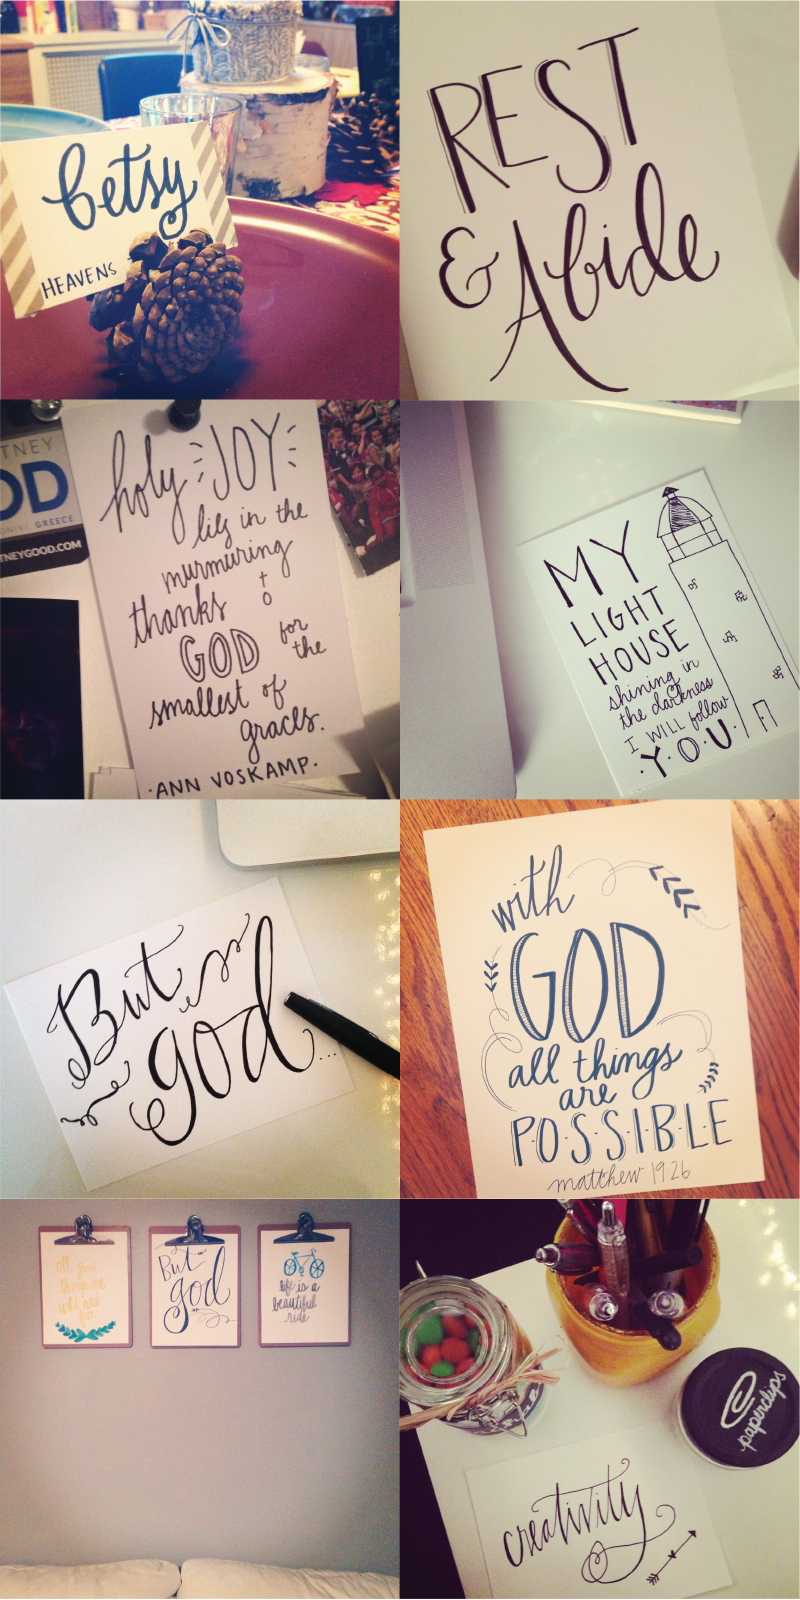 betsy
HEAVENS
REST
& Abide
TNEY
OD
GREECE
TNEYGOOD.COM
holy JOY
lies in the
murmuring
thanks to
GOD for the
smallest of
graces.
·ANN VOSKAMP.
MY
LIGHT
HOUSE
shining in
the darkness
I WILL follow
·Y·O·U·
But
god...
with
GOD
all things
are
P·O·S·S·I·B·L·E
matthew 19:26
all good
things are
wild and
free
But
god
life is a
beautiful
ride
paperclips
creativity